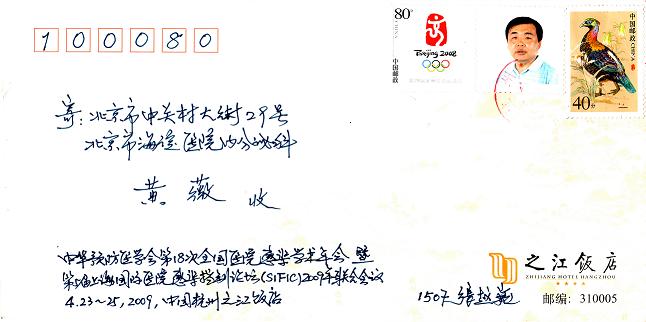 100080
80分
中国邮政
Beijing 2008
中国邮政
CHINA
40分
寄:北京市中关村大街29号
北京市海淀医院内分泌科
黄薇 收
中华预防医学会第18次全国医院感染学术年会暨
第5届上海国际医院感染控制论坛(SIFIC)2009年联合会议
4.23~25,2009,中国杭州之江饭店
之江饭店
ZHIJIANG HOTEL HANGZHOU
1507 张
邮编:310005